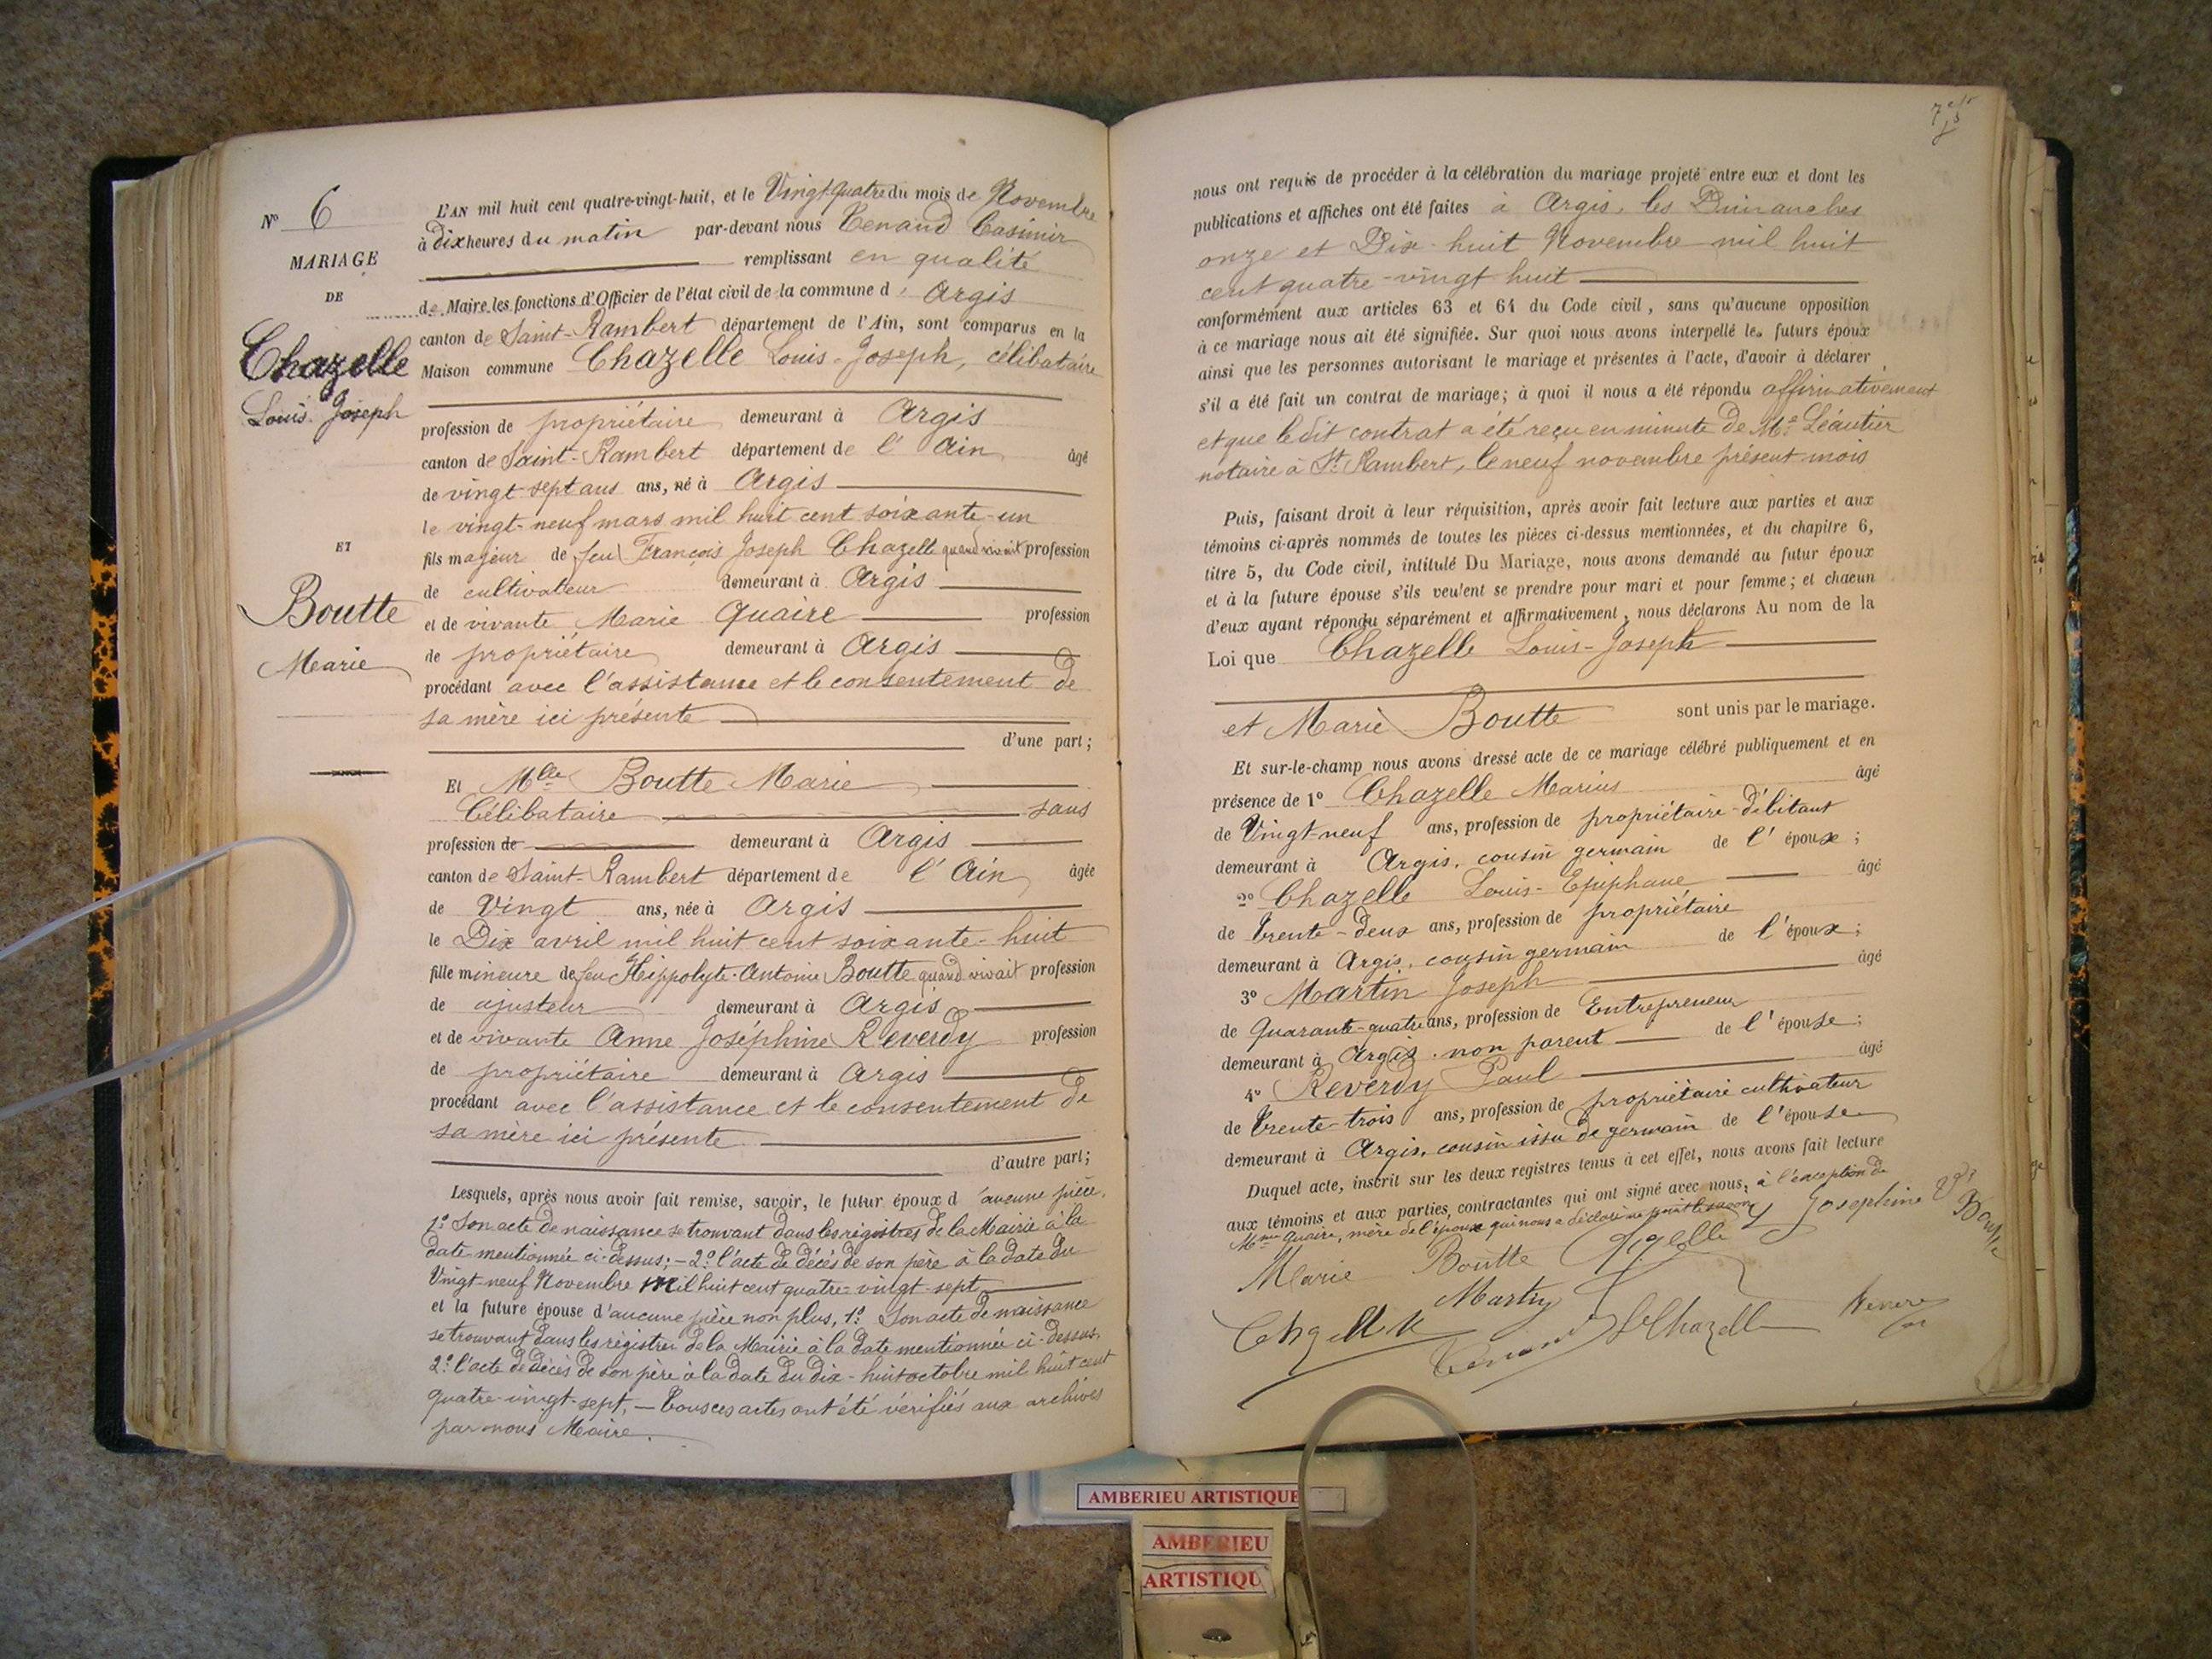 N° 6
MARIAGE
DE
Chazelle
Louis-Joseph
ET
Boutte
Marie
L'AN mil huit cent quatre-vingt-huit, et le Vingt-quatre du mois de Novembre
à dix heures du matin par-devant nous Tenand Casimir
remplissant en qualité
de Maire les fonctions d'Officier de l'état civil de la commune d' Argis
canton de Saint-Rambert département de l'Ain, sont comparus en la
Maison commune Chazelle Louis-Joseph, célibataire
profession de propriétaire demeurant à Argis
canton de Saint-Rambert département de l'Ain âgé
de vingt sept ans ans, né à Argis
le vingt-neuf mars mil huit cent soixante-un
fils majeur de feu François Joseph Chazelle quand vivait profession
de cultivateur demeurant à Argis
et de vivante Marie Quaire profession
de propriétaire demeurant à Argis
procédant avec l'assistance et le consentement de
sa mère ici présente
d'une part;
Et Mlle Boutte Marie
Célibataire sans
profession de demeurant à Argis
canton de Saint-Rambert département de l'Ain âgée
de Vingt ans, née à Argis
le Dix avril mil huit cent soixante-huit
fille mineure de feu Hippolyte-Antoine Boutte quand vivait profession
de ajusteur demeurant à Argis
et de vivante Anne Joséphine Reverdy profession
de propriétaire demeurant à Argis
procédant avec l'assistance et le consentement de
sa mère ici présente
d'autre part;
Lesquels, après nous avoir fait remise, savoir, le futur époux d'aucune pièce,
1° Son acte de naissance se trouvant dans les régistres de la Mairie à la
date mentionnée ci-dessus; - 2° l'acte de décès de son père à la date du
Vingt-neuf Novembre Mil huit cent quatre-vingt-sept
et la future épouse d'aucune pièce non plus, 1° Son acte de naissance
se trouvant dans les régistres de la Mairie à la date mentionnée ci-dessus,
2° l'acte de décès de son père à la date du dix-huit octobre mil huit cent
quatre-vingt-sept, — Tous ces actes ont été vérifiés aux archives
par nous Maire.
nous ont requis de procéder à la célébration du mariage projeté entre eux et dont les
publications et affiches ont été faites à Argis, les Dimanches
onze et Dix-huit Novembre mil huit
cent quatre-vingt huit
conformément aux articles 63 et 64 du Code civil, sans qu'aucune opposition
à ce mariage nous ait été signifiée. Sur quoi nous avons interpellé les futurs époux
ainsi que les personnes autorisant le mariage et présentes à l'acte, d'avoir à déclarer
s'il a été fait un contrat de mariage; à quoi il nous a été répondu affirmativement
et que le dit contrat a été reçu en minute de Me Léautier
notaire à St Rambert, le neuf novembre présent mois
Puis, faisant droit à leur réquisition, après avoir fait lecture aux parties et aux
témoins ci-après nommés de toutes les pièces ci-dessus mentionnées, et du chapitre 6,
titre 5, du Code civil, intitulé Du Mariage, nous avons demandé au futur époux
et à la future épouse s'ils veulent se prendre pour mari et pour femme; et chacun
d'eux ayant répondu séparément et affirmativement, nous déclarons Au nom de la
Loi que Chazelle Louis-Joseph
et Marie Boutte sont unis par le mariage.
Et sur-le-champ nous avons dressé acte de ce mariage célébré publiquement et en
présence de 1° Chazelle Marius âgé
de Vingt-neuf ans, profession de propriétaire-débitant
demeurant à Argis, cousin germain de l'époux;
2° Chazelle Louis-Epiphane âgé
de trente-deux ans, profession de propriétaire
demeurant à Argis, cousin germain de l'époux;
3° Martin Joseph âgé
de Quarante-quatre ans, profession de Entrepreneur
demeurant à Argis, non parent de l'épouse;
4° Reverdy Paul âgé
de trente-trois ans, profession de propriétaire cultivateur
demeurant à Argis, cousin issu de germain de l'épouse
Duquel acte, inscrit sur les deux registres tenus à cet effet, nous avons fait lecture
aux témoins et aux parties contractantes qui ont signé avec nous, à l'exception de
Mme Quaire, mère de l'époux qui nous a déclaré ne point le savoir
Josephine
Boutte
Marie Boutte
Martin
Tenand
Chazelle
AMBERIEU ARTISTIQUE
AMBERIEU
ARTISTIQU